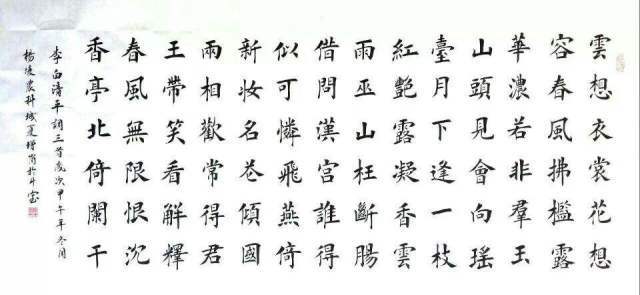 雲想衣裳花想
容春風拂檻露
華濃若非羣玉
山頭見會向瑶
臺月下逢一枝
紅艷露凝香雲
雨巫山枉斷腸
借問漢宮誰得
似可憐飛燕倚
新妝名花傾國
兩相歡常得君
王帶笑看解釋
春風無限恨沉
香亭北倚闌干
李白清平調三首歲次甲午年冬月
楊凌農科城夏增於斗室